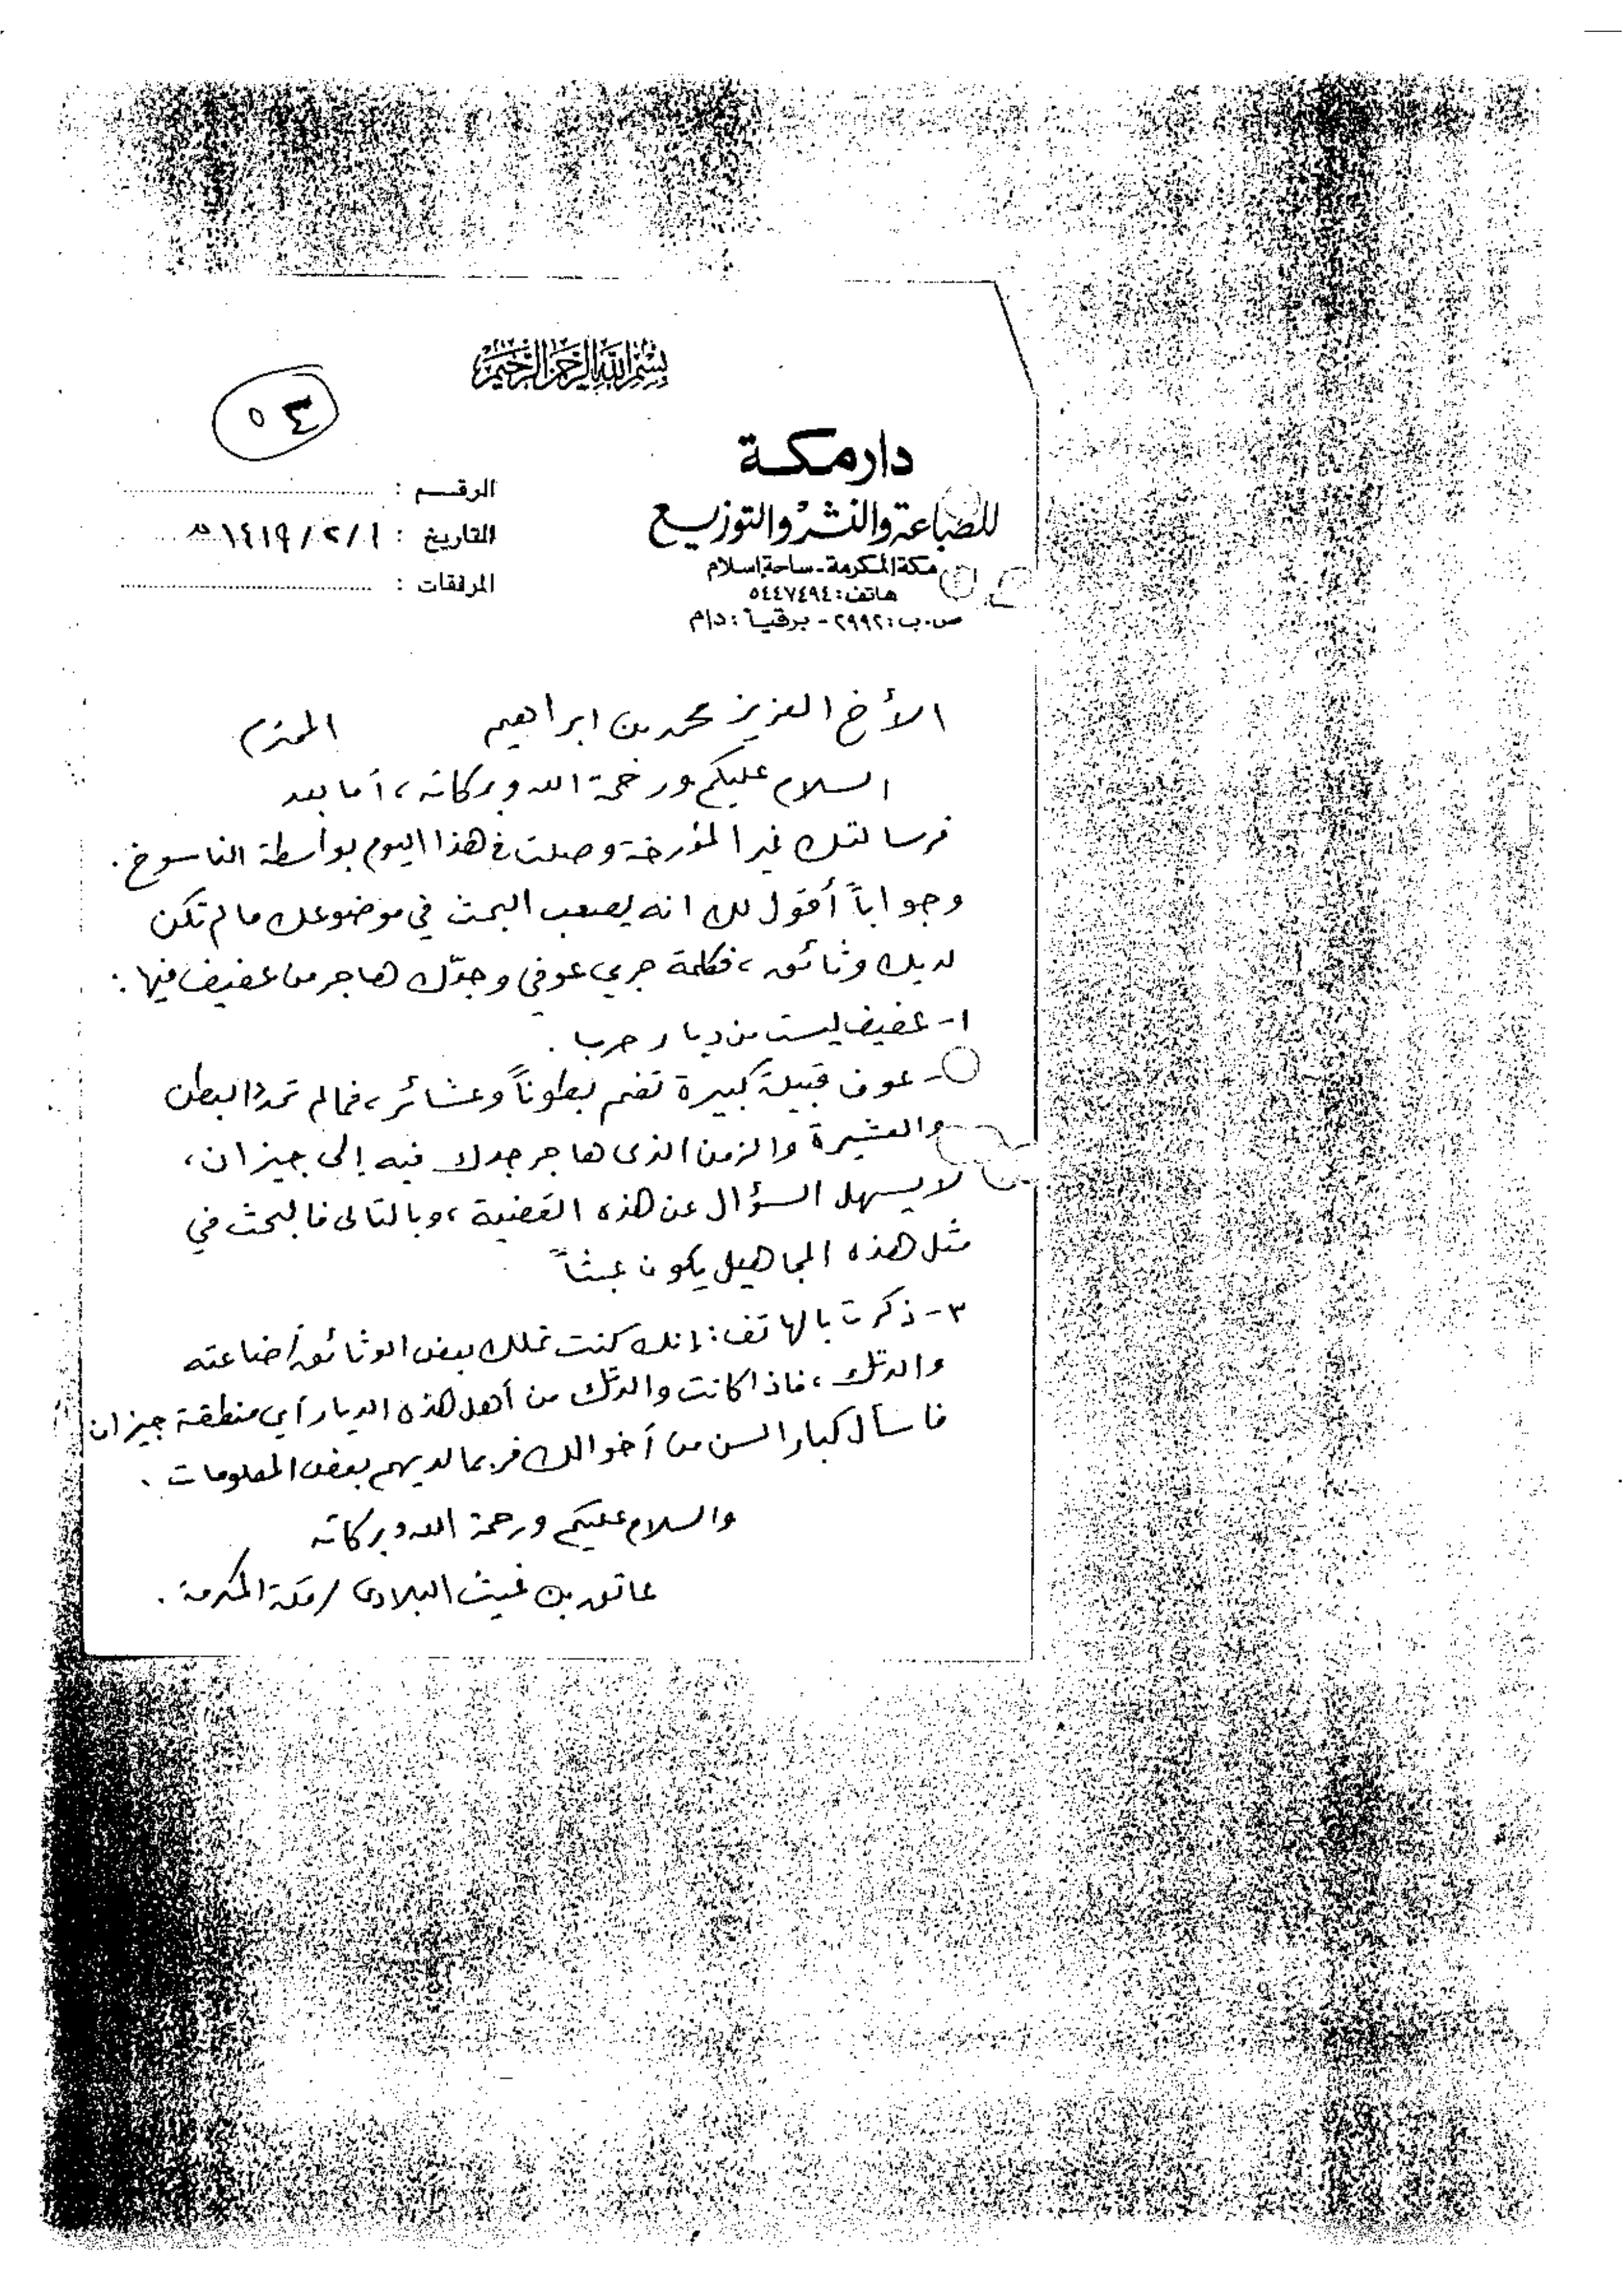 بسم الله الرحمن الرحيم
٥٣
دار مكة
للطباعة والنشر والتوزيع
مكة المكرمة - ساحة إسلام
هاتف : ٥٤٤٧٤٩٤
ص.ب : ٢٩٩٢ - برقياً : دام
الرقم :
التاريخ : ١ / ٢ / ١٤١٩ هـ
المرفقات :
الأخ العزيز محمد بن ابراهيم المحترم
السلام عليكم ورحمة الله وبركاته ، أما بعد
فرسالتك غير المؤرخة وصلت في هذا اليوم بواسطة الناسوخ .
وجواباً أقول لك انه يصعب البحث في موضوعك ما لم تكن
لديك وثائق ، فكلمة حربي عوفي وجدّك هاجر من عفيف فيها :
١- عفيف ليست من ديار حرب .
- عوف قبيلة كبيرة تضم بطوناً وعشائر ، فما لم تحدد البطن
والعشيرة والزمن الذى هاجر جدك فيه إلى جيزان ،
لا يسهل السؤال عن هذه القضية ، وبالتالى فالبحث في
مثل هذه المجاهيل يكون عبثاً
٣- ذكرت بالهاتف : إنك كنت تملك بعض الوثائق أضاعته
والدتك ، فاذا كانت والدتك من أهل هذه الديار أي منطقة جيزان
فاسأل كبار السن من أخوالك فربما لديهم بعض المعلومات .
والسلام عليكم ورحمة الله وبركاته
عاتق بن غيث البلادى / مكة المكرمة .